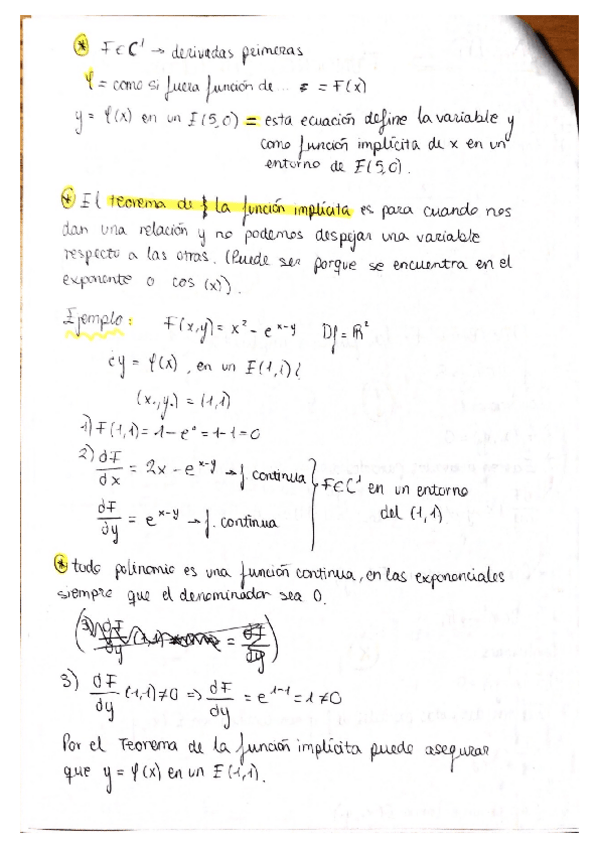 * F∈C¹ → derivadas primeras
φ = como si fuera función de... z = F(x)
y = φ(x) en un E(5,0) = esta ecuación define la variable y
como función implícita de x en un
entorno de E(5,0).
* El teorema de la función implícita es para cuando nos
dan una relación y no podemos despejar una variable
respecto a las otras. (Puede ser porque se encuentra en el
exponente o cos (x)).
Ejemplo: F(x,y) = x² - e^x-y Df = ℝ²
¿y = φ(x), en un E(1,1)?
(x₀,y₀) = (1,1)
1) F(1,1) = 1 - e⁰ = 1-1 = 0
2) dF/dx = 2x - e^x-y → f. continua
dF/dy = e^x-y → f. continua
} F∈C¹ en un entorno
del (1,1)
* todo polinomio es una función continua, en las exponenciales
siempre que el denominador sea 0.
3) dF/dy (1,1) ≠ 0 ⇒ dF/dy = e^1-1 = 1 ≠ 0
Por el Teorema de la función implícita puede asegurar
que y = φ(x) en un E(1,1).